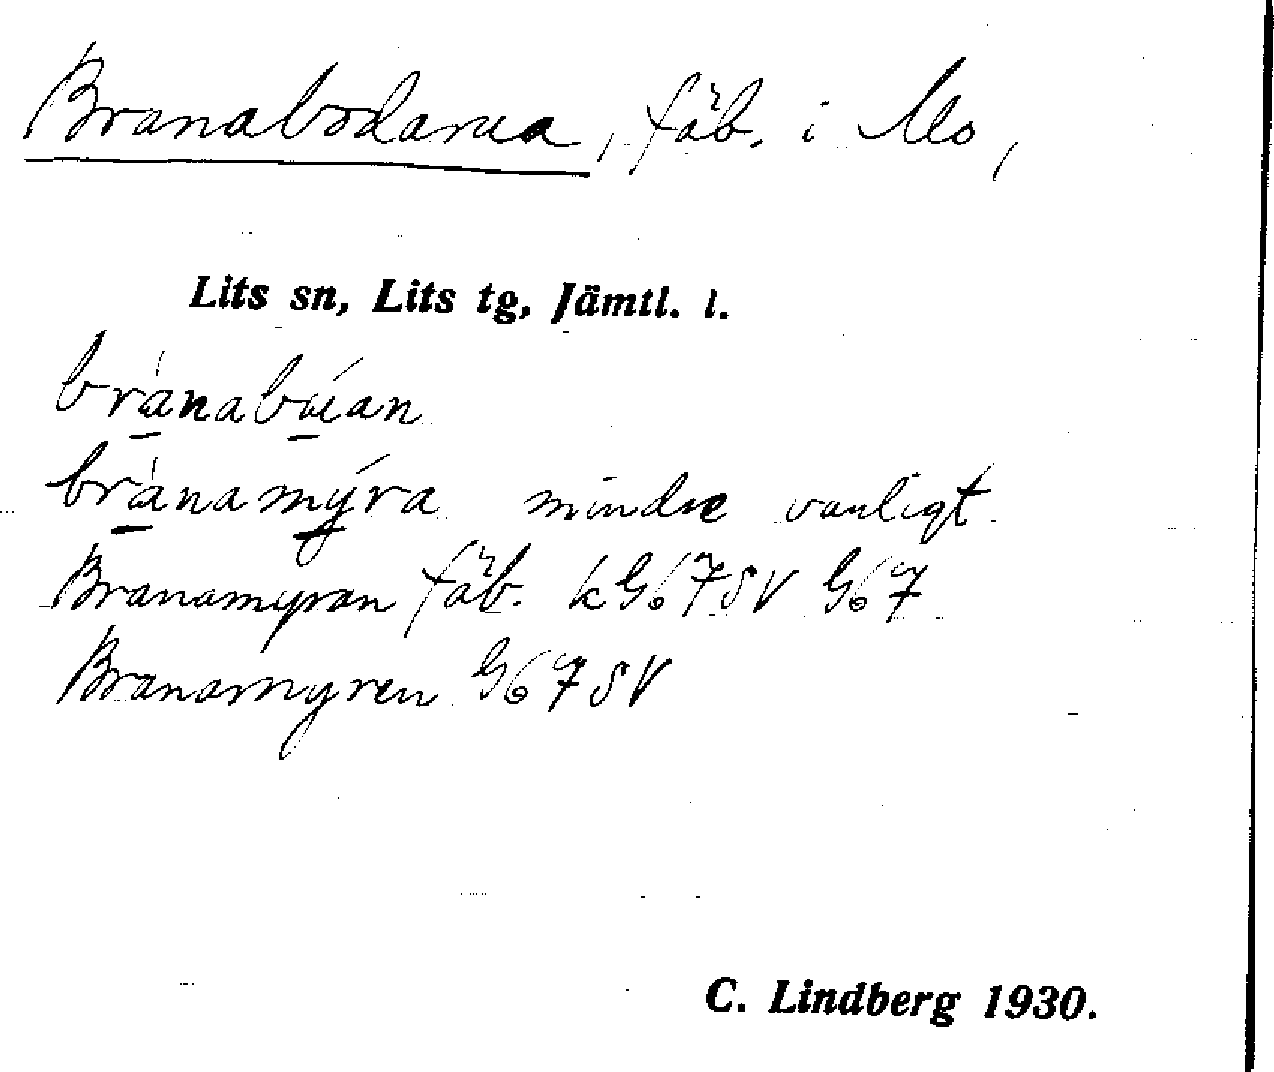 Branabodarna, fäb. i Mo,
Lits sn, Lits tg, Jämtl. l.
brànabúan
brànamýra mindre vanligt
Branamyran fäb. kG67SV G67
Branamyren G67SV
C. Lindberg 1930.